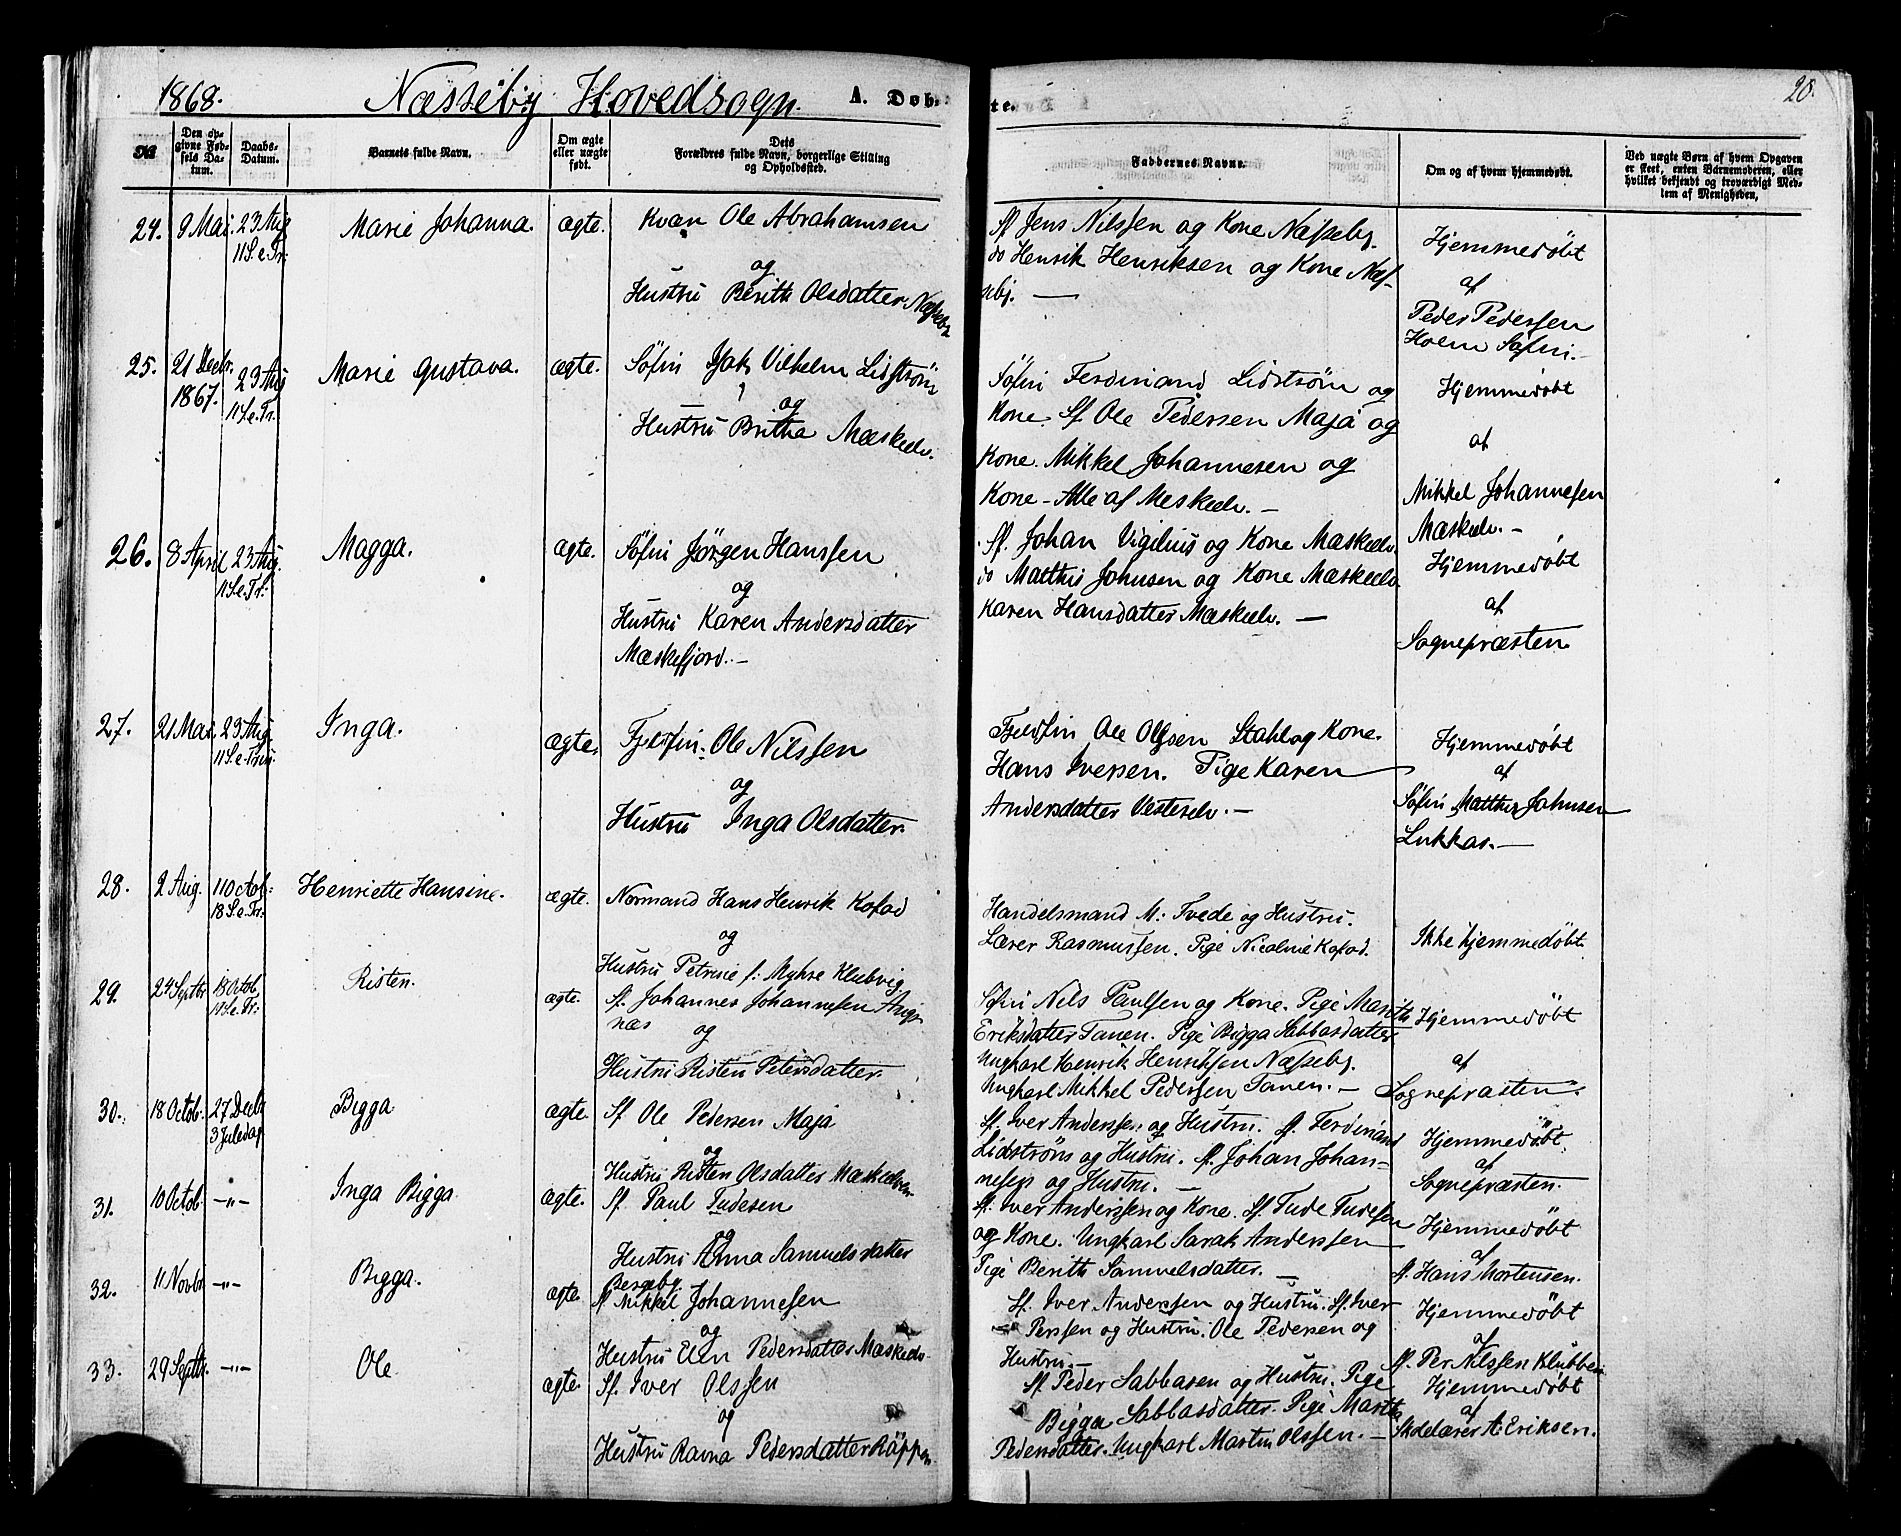 1868. Næsseby Hovedsogn. A. Døb- te. 20.
No
Den op-
givne Fød-
sels Da-
tum.
Daabs-
Datum.
Barnets fulde Navn.
Om ægte
eller uægte
født.
Dets
Forældres fulde Navn, borgerlige Stilling
og Opholdssted.
Faddernes Navne.
Om og af hvem hjemmedøbt.
Ved uægte Børn af hvem Opgaven
er skeet, enten Barnemoderen, eller
hvilket bekjendt og troværdigt Med-
lem af Menigheden.
24. 9 Mai. 23 Aug
11 S. e. Tr.
Marie Johanna. ægte.
Kvæn Ole Abrahamsen
og
Hustru Berith Olsdatter Næsseby
Sf Jens Nilssen og Kone Næsseby.
do Henrik Henriksen og Kone Næs-
seby. —
Hjemmedøbt
af
Peder Pedersen
Holm Søfin.
25. 21 Decbr.
1867.
23 Aug
11 S. e. Tr.
Marie Gustava. ægte.
Søfin Isak Vilhelm Lidstrøm
og
Hustru Britha Mæskelv.
Søfin Ferdinand Lidstrøm og
Kone. Sf Ole Pedersen Maja og
Kone. Mikkel Johannesen og
Kone - Alle af Meskelv. —
Hjemmedøbt
af
Mikkel Johannesen
Mæskelv. —
26. 8 April 23 Aug.
11 S. e. Tr.
Magga. ægte.
Søfin Jørgen Hanssen
og
Hustru Karen Andersdatter
Mæskefjord. —
Sf. Johan Vigilius og Kone Mæskelv.
do Matthis Johnsen og Kone Mæskelv
Karen Hansdatter Mæskelv. —
Hjemmedøbt
af
Sognepræsten
27. 21 Mai. 23 Aug.
11 S. e. Trin.
Inga. ægte.
Fjeldfin. Ole Nilssen
og
Hustru Inga Olsdatter.
Fjeldfin Ole Olssen Stahl og Kone.
Hans Iversen. Pige Karen
Andersdatter Vesterelv. —
Hjemmedøbt
af
Søfin Matthis Johnsen
Lukkas. —
28. 2 Aug. 11 Octob.
18 S. e. Tr.
Henriette Hansine. ægte.
Normand Hans Henrik Kofod
og
Hustru Petrine f. Myhre Klubvig
Handelsmand M. Tvede og Hustru.
Lærer Rasmussen. Pige Nicoline Kofod.
Ikke hjemmedøbt.
29. 24 Septbr 18 Octob
19 S. e. Tr.
Risten. ægte.
Sf. Johannes Johannesen Angs-
næs og
Hustru Risten Petersdatter.
Søfin Nils Paulsen og Kone. Pige Marith
Eriksdatter Tanen. Pige Bigga Sabbasdatter
Ungkarl Henrik Henriksen Næsseby.
Ungkarl Mikkel Pedersen Tanen. —
Hjemmedøbt
af
Sognepræsten.
30. 18 Octob. 27 Decbr
3 Juledag
Bigga ægte.
Sf Ole Pedersen Maja
og
Hustru Risten Olsdatter Mæskelven
Sf. Iver Anderssen og Hustru. Sf. Ferdinand
Lidstrøm og Hustru. Sf. Johan Johan-
nesen og Hustru. —
Hjemmedøbt
af
Sognepræsten.
31. 10 Octob. —"—
Inga Bigga ægte.
Sf. Paul Tudesen
og
Hustru Anna Samuelsdatter
Bergeby
Sf. Iver Anderssen og Kone. Sf. Tude Tudesen
og Kone. Ungkarl Sarak Anderssen
Pige Berith Samuelsdatter. —
Hjemmedøbt
af
Sf. Hans Mortensen.
32. 11 Novbr —"—
Bigga. ægte.
Sf Mikkel Johannesen
og
Hustru Elen Pedersdatter Mæskelv.
Sf. Iver Anderssen og Hustru. Sf. Iver
Perssen og Hustru. Ole Pedersen og
Hustru. —
Hjemmedøbt
af
Sf. Per Nilssen Klubben
33. 29 Septbr. —"—
Ole ægte.
Sf. Iver Olssen
og
Hustru Ravna Pedersdatter
Sf. Peder Sabbasen og Hustru. Pige
Bigga Sabbasdatter. Pige Martha
Pedersdatter. Ungkarl Martin Olssen. —
Hjemmedøbt
af
Skolelærer A. Eriksen.